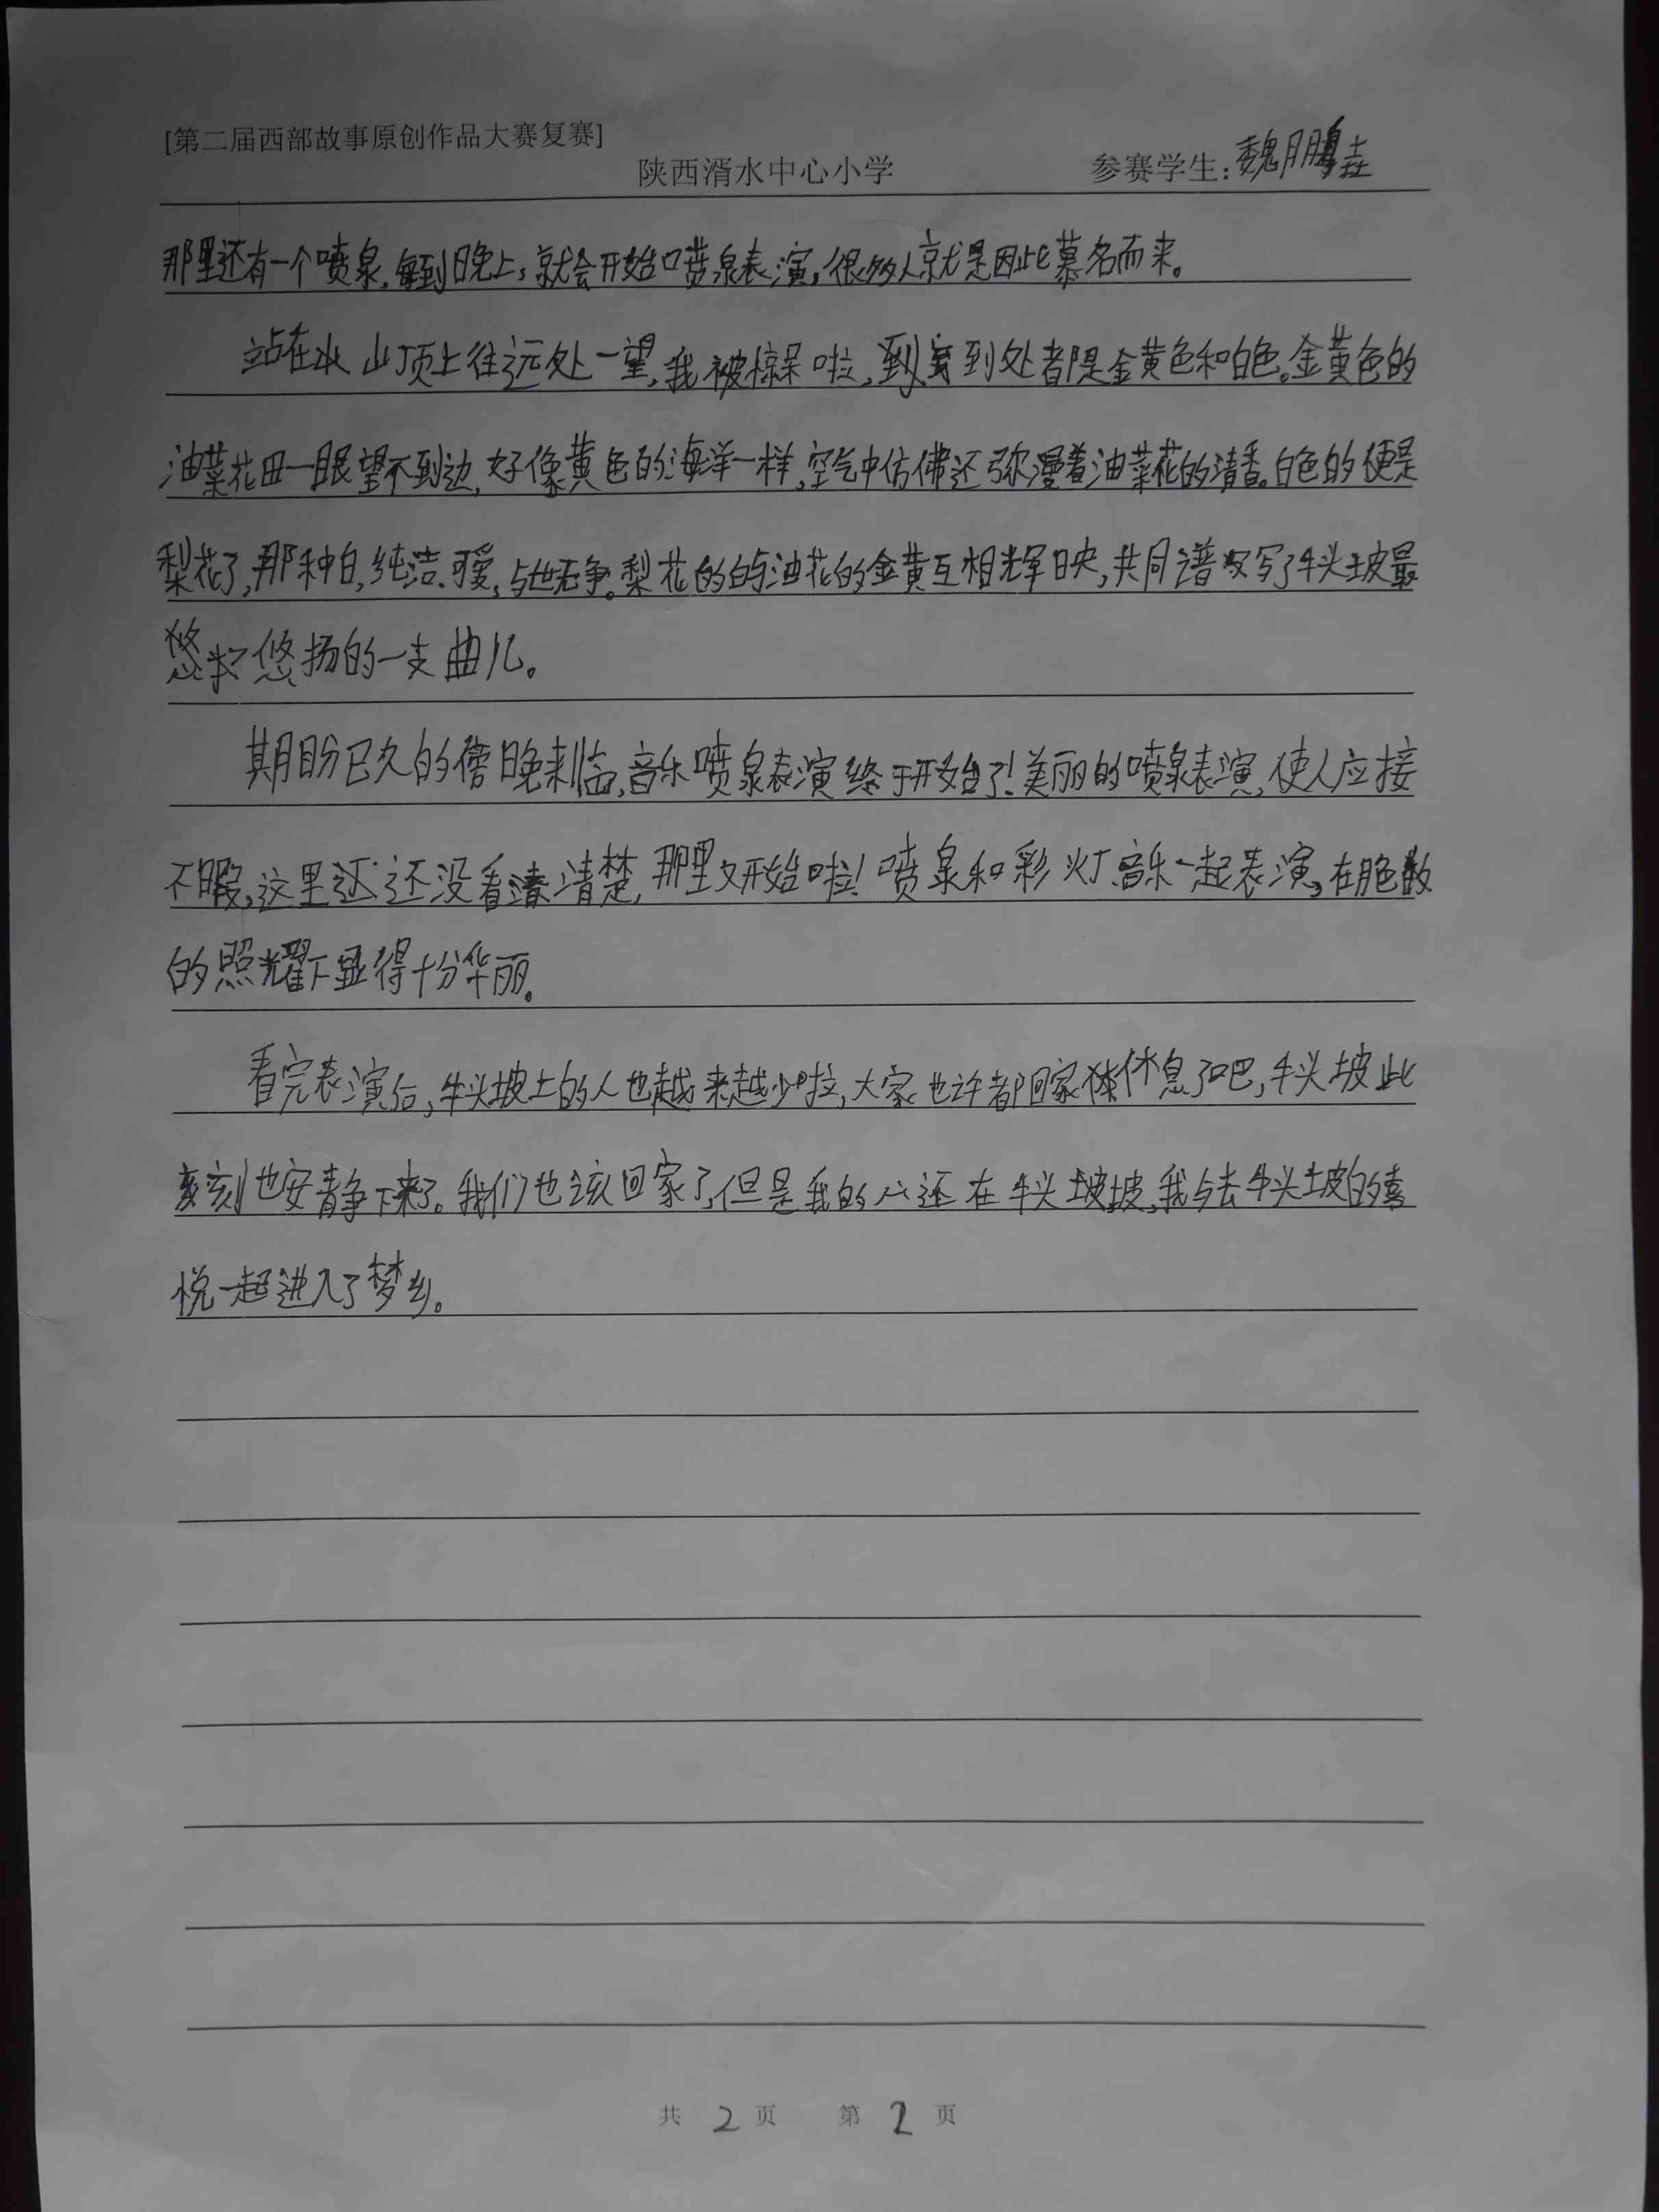 [第二届西部故事原创作品大赛复赛]
陕西湑水中心小学 参赛学生：魏鹏垚
那里还有一个喷泉，每到晚上，就会开始喷泉表演，很多人就是因此慕名而来。
站在山顶上往远处一望，我被惊呆啦，到处都是金黄色和白色。金黄色的
油菜花田一眼望不到边，好像黄色的海洋一样，空气中仿佛还弥漫着油菜花的清香。白色的便是
梨花了，那种白，纯洁、可爱，与世无争。梨花的白与油花的金黄互相辉映，共同谱写了牛头坡最
悠扬的一支曲儿。
期盼已久的傍晚来临，音乐喷泉表演终于开始了！美丽的喷泉表演，使人应接
不暇，这里还没看清楚，那里又开始啦！喷泉和彩灯、音乐一起表演，在
的照耀下显得十分华丽。
看完表演后，牛头坡上的人也越来越少啦，大家也许都回家休息了吧，牛头坡此
刻也安静下来了。我们也该回家了，但是我的心还在牛头坡，我与去牛头坡的喜
悦一起进入了梦乡。
共 2 页 第 2 页